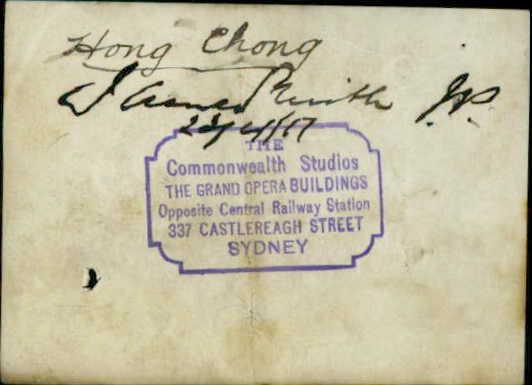 Hong Chong
J.P.
THE
Commonwealth Studios
THE GRAND OPERA BUILDINGS
Opposite Central Railway Station
337 CASTLEREAGH STREET
SYDNEY